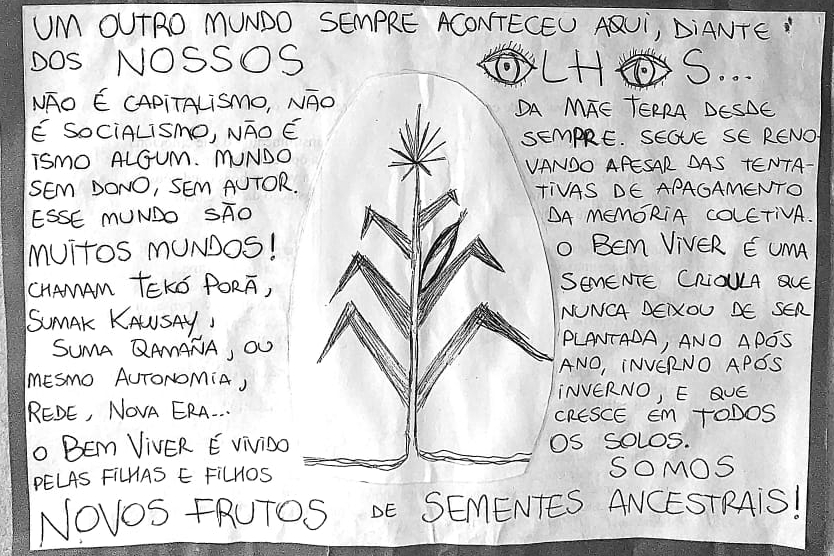 UM OUTRO MUNDO SEMPRE ACONTECEU AQUI, DIANTE
DOS NOSSOS OLHOS...
NÃO É CAPITALISMO, NÃO
É SOCIALISMO, NÃO É
ISMO ALGUM. MUNDO
SEM DONO, SEM AUTOR.
ESSE MUNDO SÃO
MUITOS MUNDOS!
CHAMAM TEKÓ PORÃ,
SUMAK KAWSAY,
SUMA QAMAÑA, OU
MESMO AUTONOMIA,
REDE, NOVA ERA...
O BEM VIVER É VIVIDO
PELAS FILHAS E FILHOS
DA MÃE TERRA DESDE
SEMPRE. SEGUE SE RENO-
VANDO APESAR DAS TENTA-
TIVAS DE APAGAMENTO
DA MEMÓRIA COLETIVA.
O BEM VIVER É UMA
SEMENTE CRIOULA QUE
NUNCA DEIXOU DE SER
PLANTADA, ANO APÓS
ANO, INVERNO APÓS
INVERNO, E QUE
CRESCE EM TODOS
OS SOLOS.
SOMOS
NOVOS FRUTOS DE SEMENTES ANCESTRAIS!